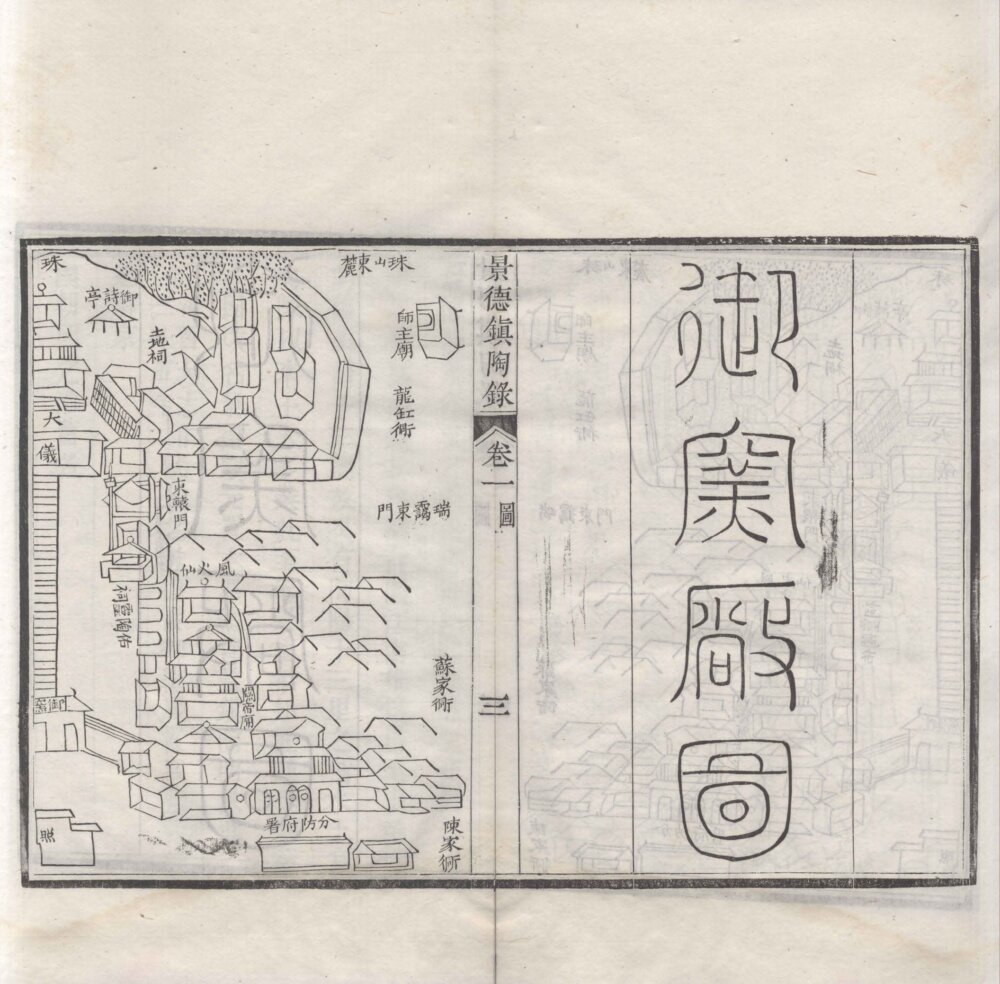 御窯厰圖
景德鎮陶錄
卷一
圖
三
珠山東麓
師主廟
龍缸衖
瑞靄東門
蘇家衖
陳家衖
珠
御詩亭
土地祠
大
儀
東轅門
風火仙
佑陶靈祠
關帝廟
御窯
分防府署
照